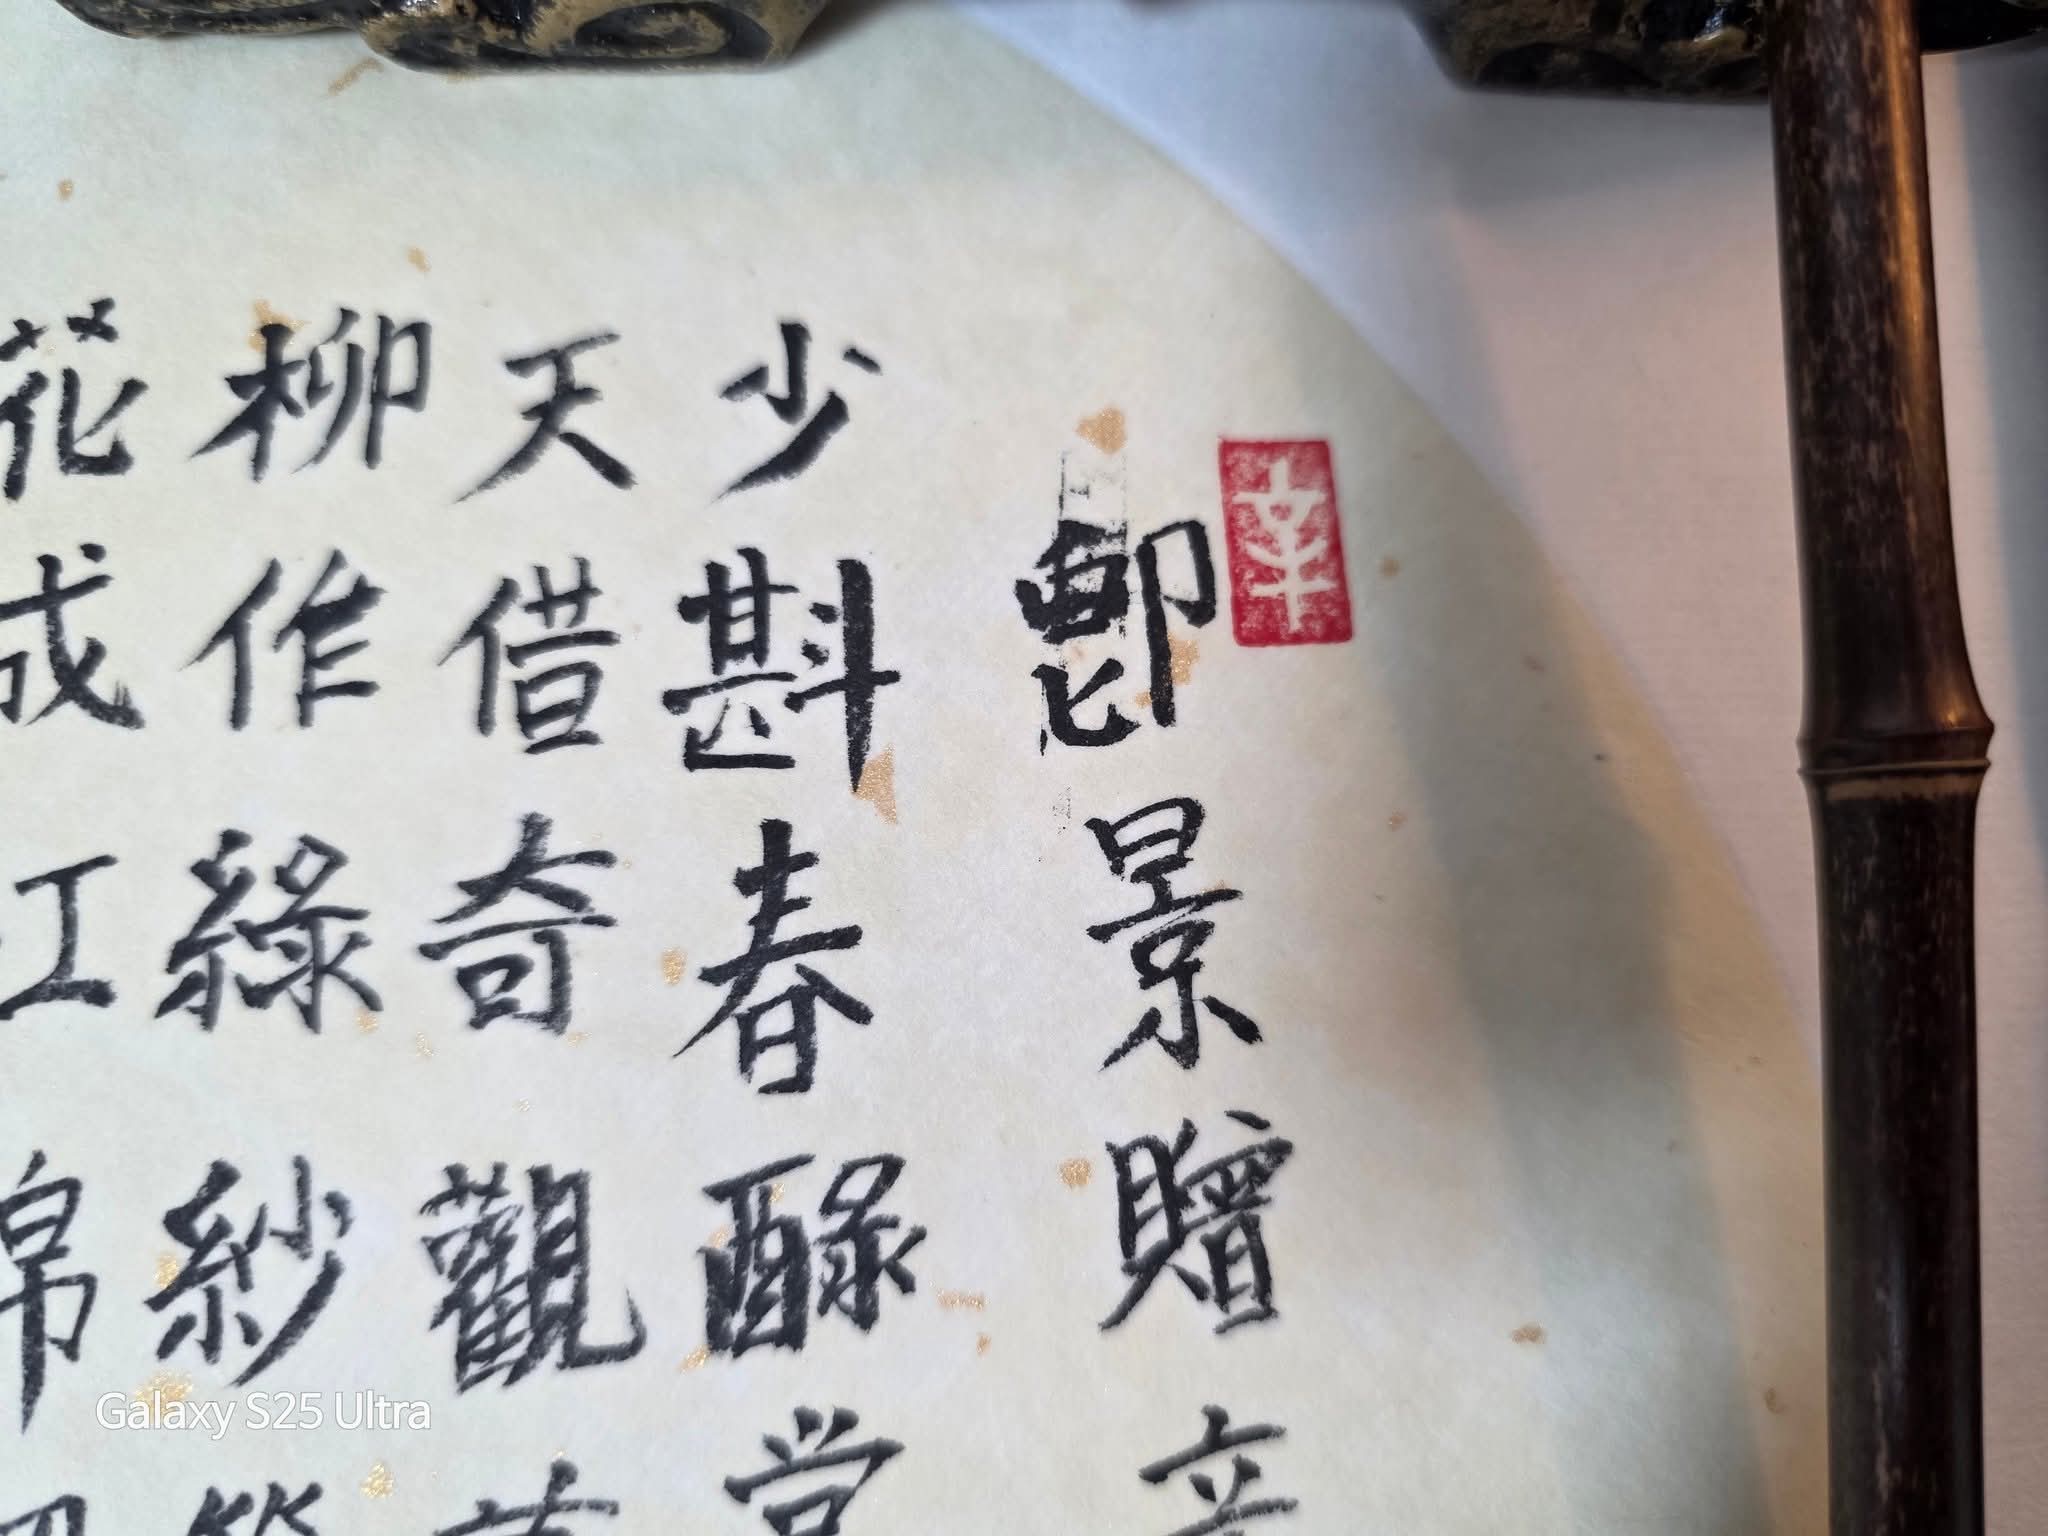 辛
卽景贈辛
少斟春醁嘗
天借奇觀
柳作綠紗
花成江錦
Galaxy S25 Ultra